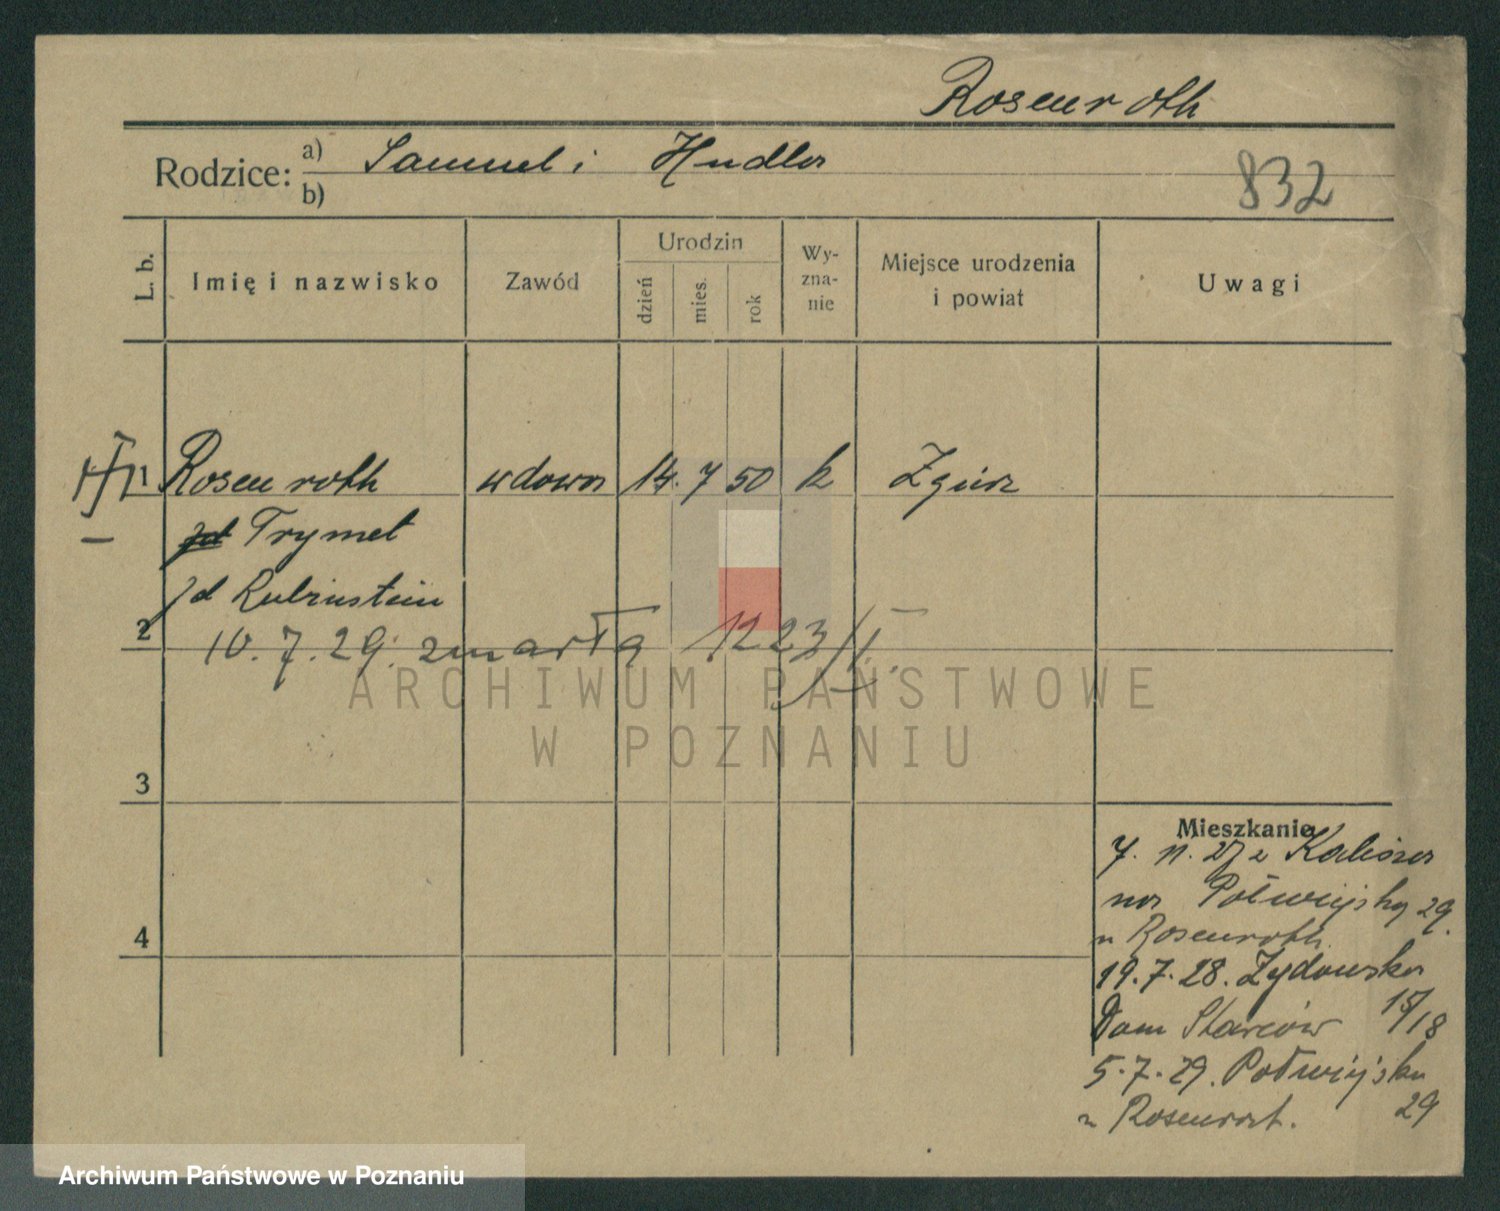 Rosenroth
Rodzice: a) Samuel i Hudla
b)
832
L. b.
Imię i nazwisko
Zawód
Urodzin
dzień
mies.
rok
Wy-
zna-
nie
Miejsce urodzenia
i powiat
Uwagi
1 Rosenroth wdowa 14. 7 50 Zgierz
zd Trymet
zd Rubinstein
2
10. 7. 29. zmarła 1223/I.
3
4
Mieszkanie
7. 11. 27 z Kalisza
na Półwiejską 29.
u Rosenroth.
19. 7. 28. Żydowska
Dom Starców 15/18
5. 7. 29. Półwiejska
29
u Rosenrot.
ARCHIWUM PAŃSTWOWE
W POZNANIU
Archiwum Państwowe w Poznaniu